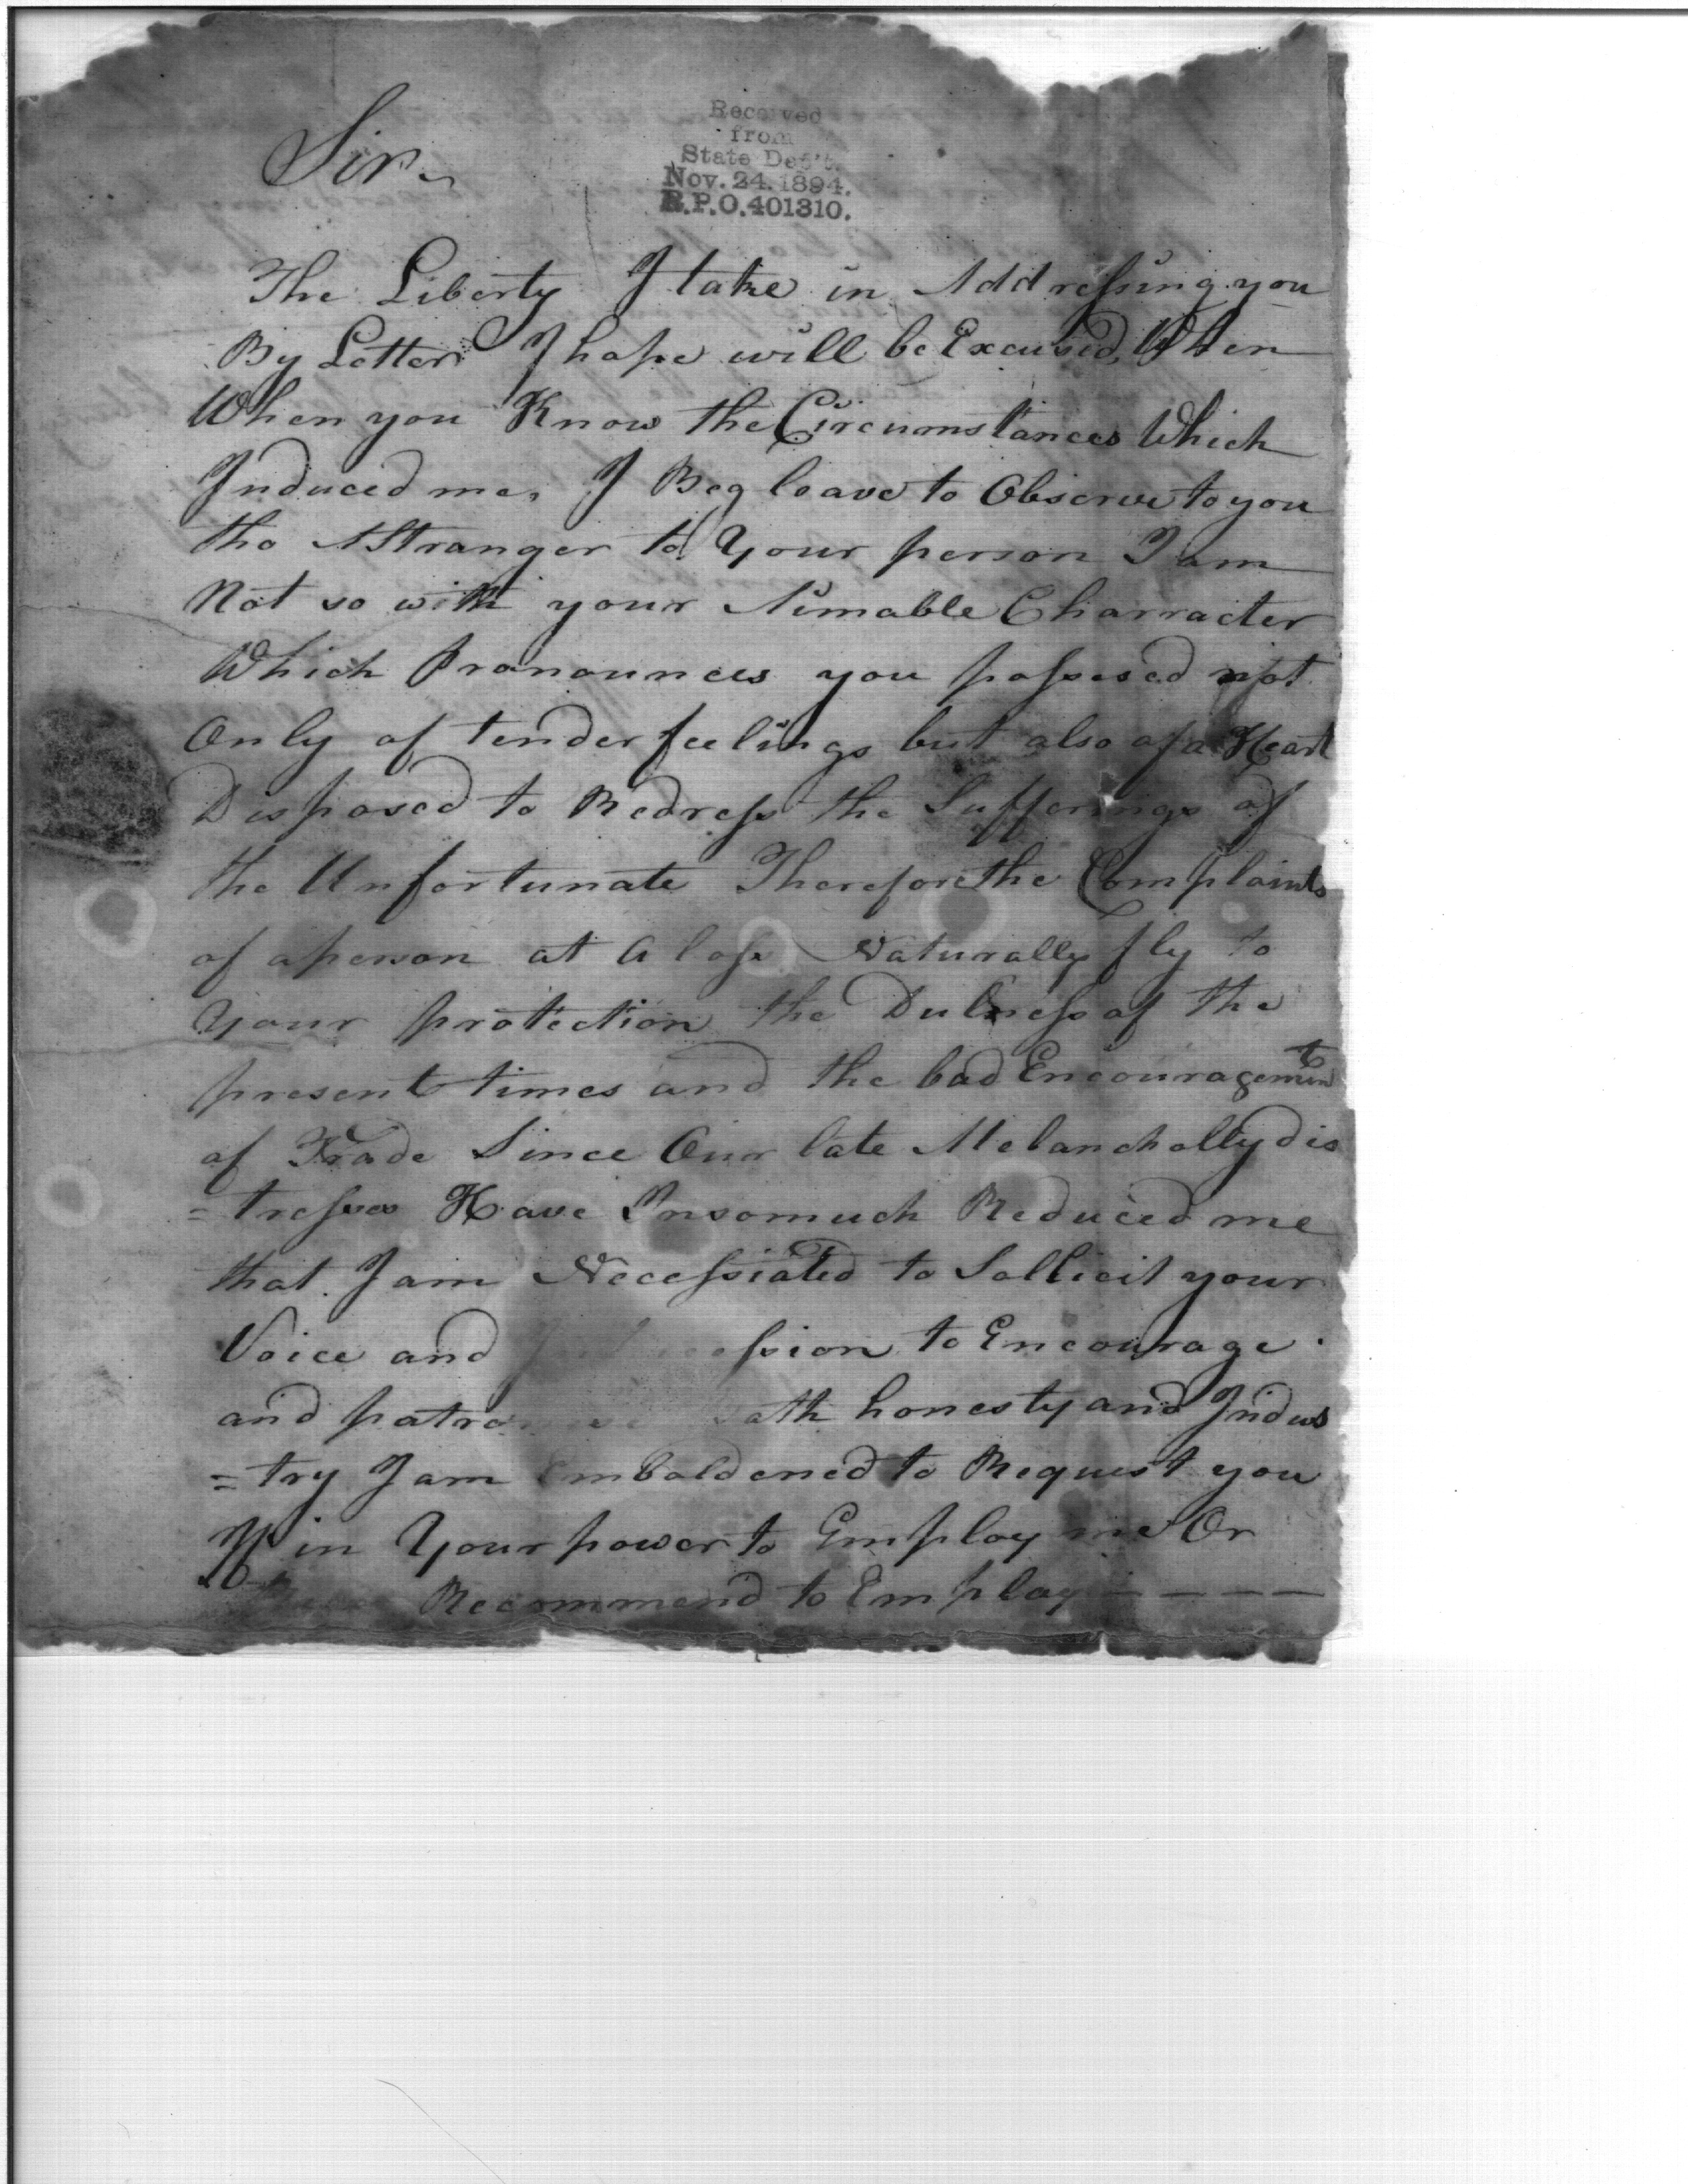 Sir
Received
from
State Dep't.
Nov. 24. 1894.
R.P.O. 401310.
The Liberty I take in Addressing you
By Letter I hope will be Excused, When
When you Know the Circumstances Which
Induced me, I Beg leave to Observe to you
tho AStranger to Your person I am
Not so with your Aimable Charracter
Which Pronounces you possesed not
Only of tender feelings but also of a Heart
Disposed to Redress the Sufferings of
the Unfortunate Therefore the Complaints
of aperson at A loss Naturally fly to
Your protection the Dulness of the
present times and the bad Encouragement
of Trade Since Our late Melancholly dis
=tresses Have Insomuch Reduced me
that I am Necessiated to Sollicit your
Voice and to Encourage
and honesty and Indus
=try I am Emboldened to Request you
If in Your power to Employ me Or
Recommend to Employ - - - -